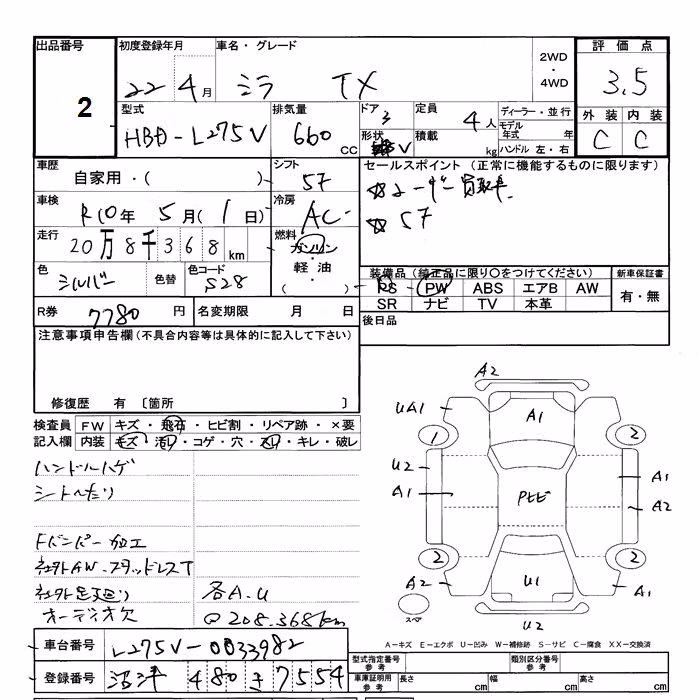 出品番号 2
初度登録年月 22 4月
車名・グレード ミラ TX
2WD・4WD
評価点 3.5
外装 内装
C C
型式 HBD-L275V
排気量 660 CC
ドア 3
形状 V
定員 4人
積載 kg
ディーラー・並行
モデル年式 年
ハンドル 左・右
車歴 自家用・( )
シフト 5F
セールスポイント (正常に機能するものに限ります)
☆ユーザー買取車
☆5F
車検 R10年 5月(1日)
冷房 AC
走行 20万8千368km
燃料 ガソリン・軽油・( )
色 シルバー
色替
色コード S28
装備品 (純正品に限り〇をつけてください)
PS PW ABS エアB AW
SR ナビ TV 本革
新車保証書 有・無
R券 7780円
名変期限 月 日
後日品
注意事項申告欄 (不具合内容等は具体的に記入して下さい)
修復歴 有 〔箇所 〕
検査員記入欄
FW キズ・飛石・ヒビ割・リペア跡・×要
内装 キズ・汚れ・コゲ・穴・スレ・キレ・破レ
ハンドルハゲ
シートへたり
Fバンパー加工
社外AW.スタッドレスT
社外足廻り
オーディオ欠
各A.U
208.368km
A2
UA1
A1
1
2
U2
A1
A1
A2
PEE
2
2
A2
U1
A1
スペア
U2
A-キズ E-エクボ U-凹み W-補修跡 S-サビ C-腐食 XX-交換済
車台番号 L275V-0033982
登録番号 沼津 480 き 7554
型式指定番号 参考
類別区分番号 参考
車庫証明用 参考 長さ cm 幅 cm 高さ cm